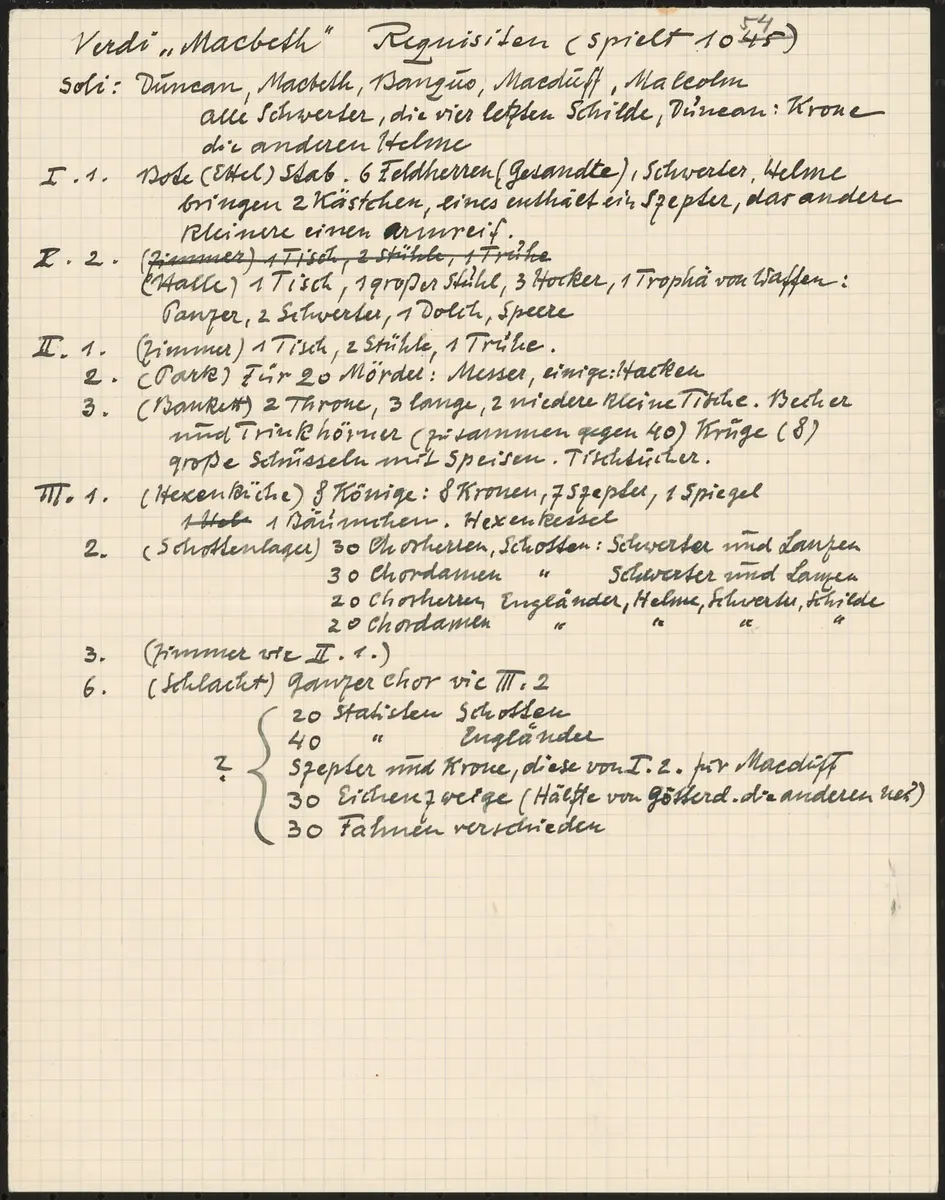 Verdi „Macbeth“ Requisiten (spielt 1045)
54
Soli: Duncan, Macbeth, Banquo, Macduff, Malcolm
alle Schwerter, die vier letzten Schilde, Duncan: Krone
die anderen Helme
I. 1. Bote (Ettel) Stab. 6 Feldherren (Gesandte), Schwerter, Helme
bringen 2 Kästchen, eines enthält ein Szepter, das andere
kleinere einen Armreif.
I. 2. (Zimmer) 1 Tisch, 2 Stühle, 1 Truhe
(Halle) 1 Tisch, 1 großer Stuhl, 3 Hocker, 1 Trophä von Waffen:
Panzer, 2 Schwerter, 1 Dolch, Speere
II. 1. (Zimmer) 1 Tisch, 2 Stühle, 1 Truhe.
2. (Park) Für 20 Mörder: Messer, einige: Hacken
3. (Bankett) 2 Throne, 3 lange, 2 niedere kleine Tische. Becher
und Trinkhörner (zusammen gegen 40) Krüge (8)
große Schüsseln mit Speisen. Tischtücher.
III. 1. (Hexenküche) 8 Könige: 8 Kronen, 7 Szepter, 1 Spiegel
1 Bäumchen. Hexenkessel
2. (Schottenlager) 30 Chorherren, Schotten: Schwerter und Lanzen
30 Chordamen " Schwerter und Lanzen
20 Chorherren Engländer, Helme, Schwerter, Schilde
20 Chordamen " " " "
3. (Zimmer wie II. 1.)
6. (Schlacht) Ganzer Chor wie III. 2
20 Statisten Schotten
40 " Engländer
? Szepter und Krone, diese von I. 2. für Macduff
30 Eichenzweige (Hälfte von Götterd. die anderen neu)
30 Fahnen verschieden